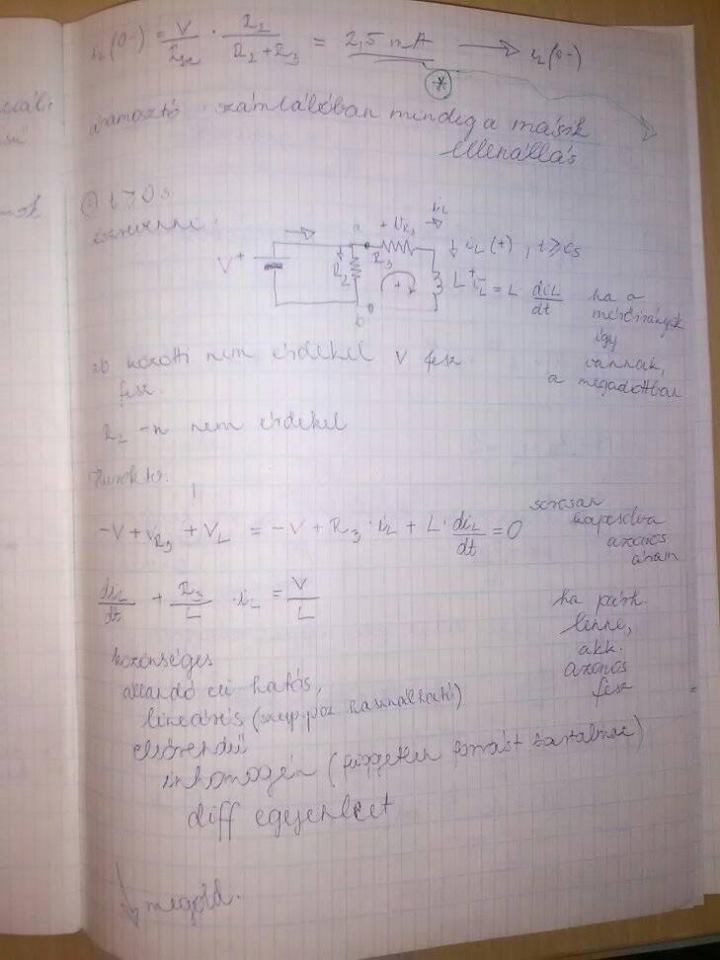 (0-) = V/R · R2/(R2+R3) = 2,5 mA → i2(0-)
áramosztó számlálóban mindig a másik
ellenállás
t > 0s
a + VR3 iL
V+ R2 R3 iL(t), t ≥ 0s
L = L · diL/dt ha a
mérőirányok
így
vannak,
a megadottban
b
ab közötti nem érdekel V fesz
fesz.
R2 -n nem érdekel
Hurokt.
-V + VR3 + VL = -V + R3 · iL + L · diL/dt = 0
sorosan
kapcsolva
azonos
áram
diL/dt + R3/L · iL = V/L
ha párh.
lenne,
akk.
azonos
fesz
közönséges
állandó eü hatós,
lineáris (szup.poz használható)
elsőrendű
inhomogén (független forrást tartalmaz)
diff egyenlet
↓ megold.